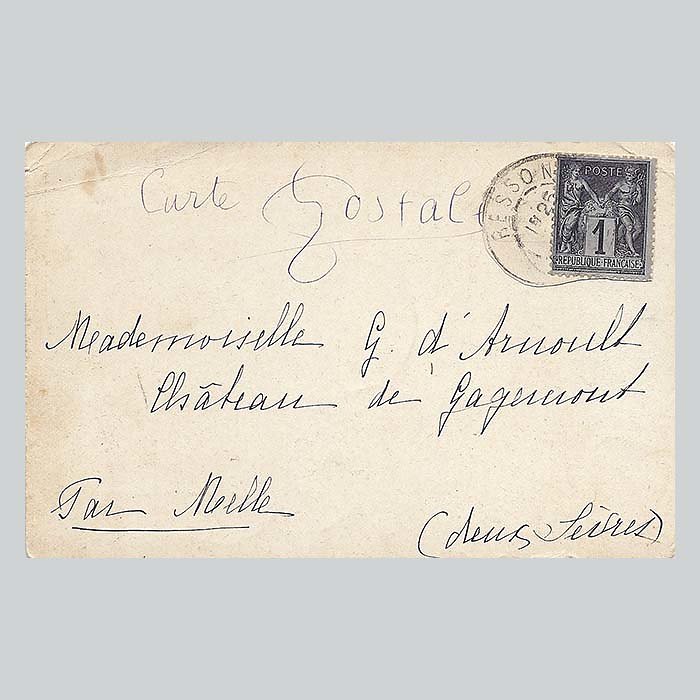 Carte Postale
RESSON
25
POSTE
1
REPUBLIQUE FRANÇAISE
Mademoiselle G. d'Arnoult
Château de Gagemont
Par Melle
(deux Sèvres)